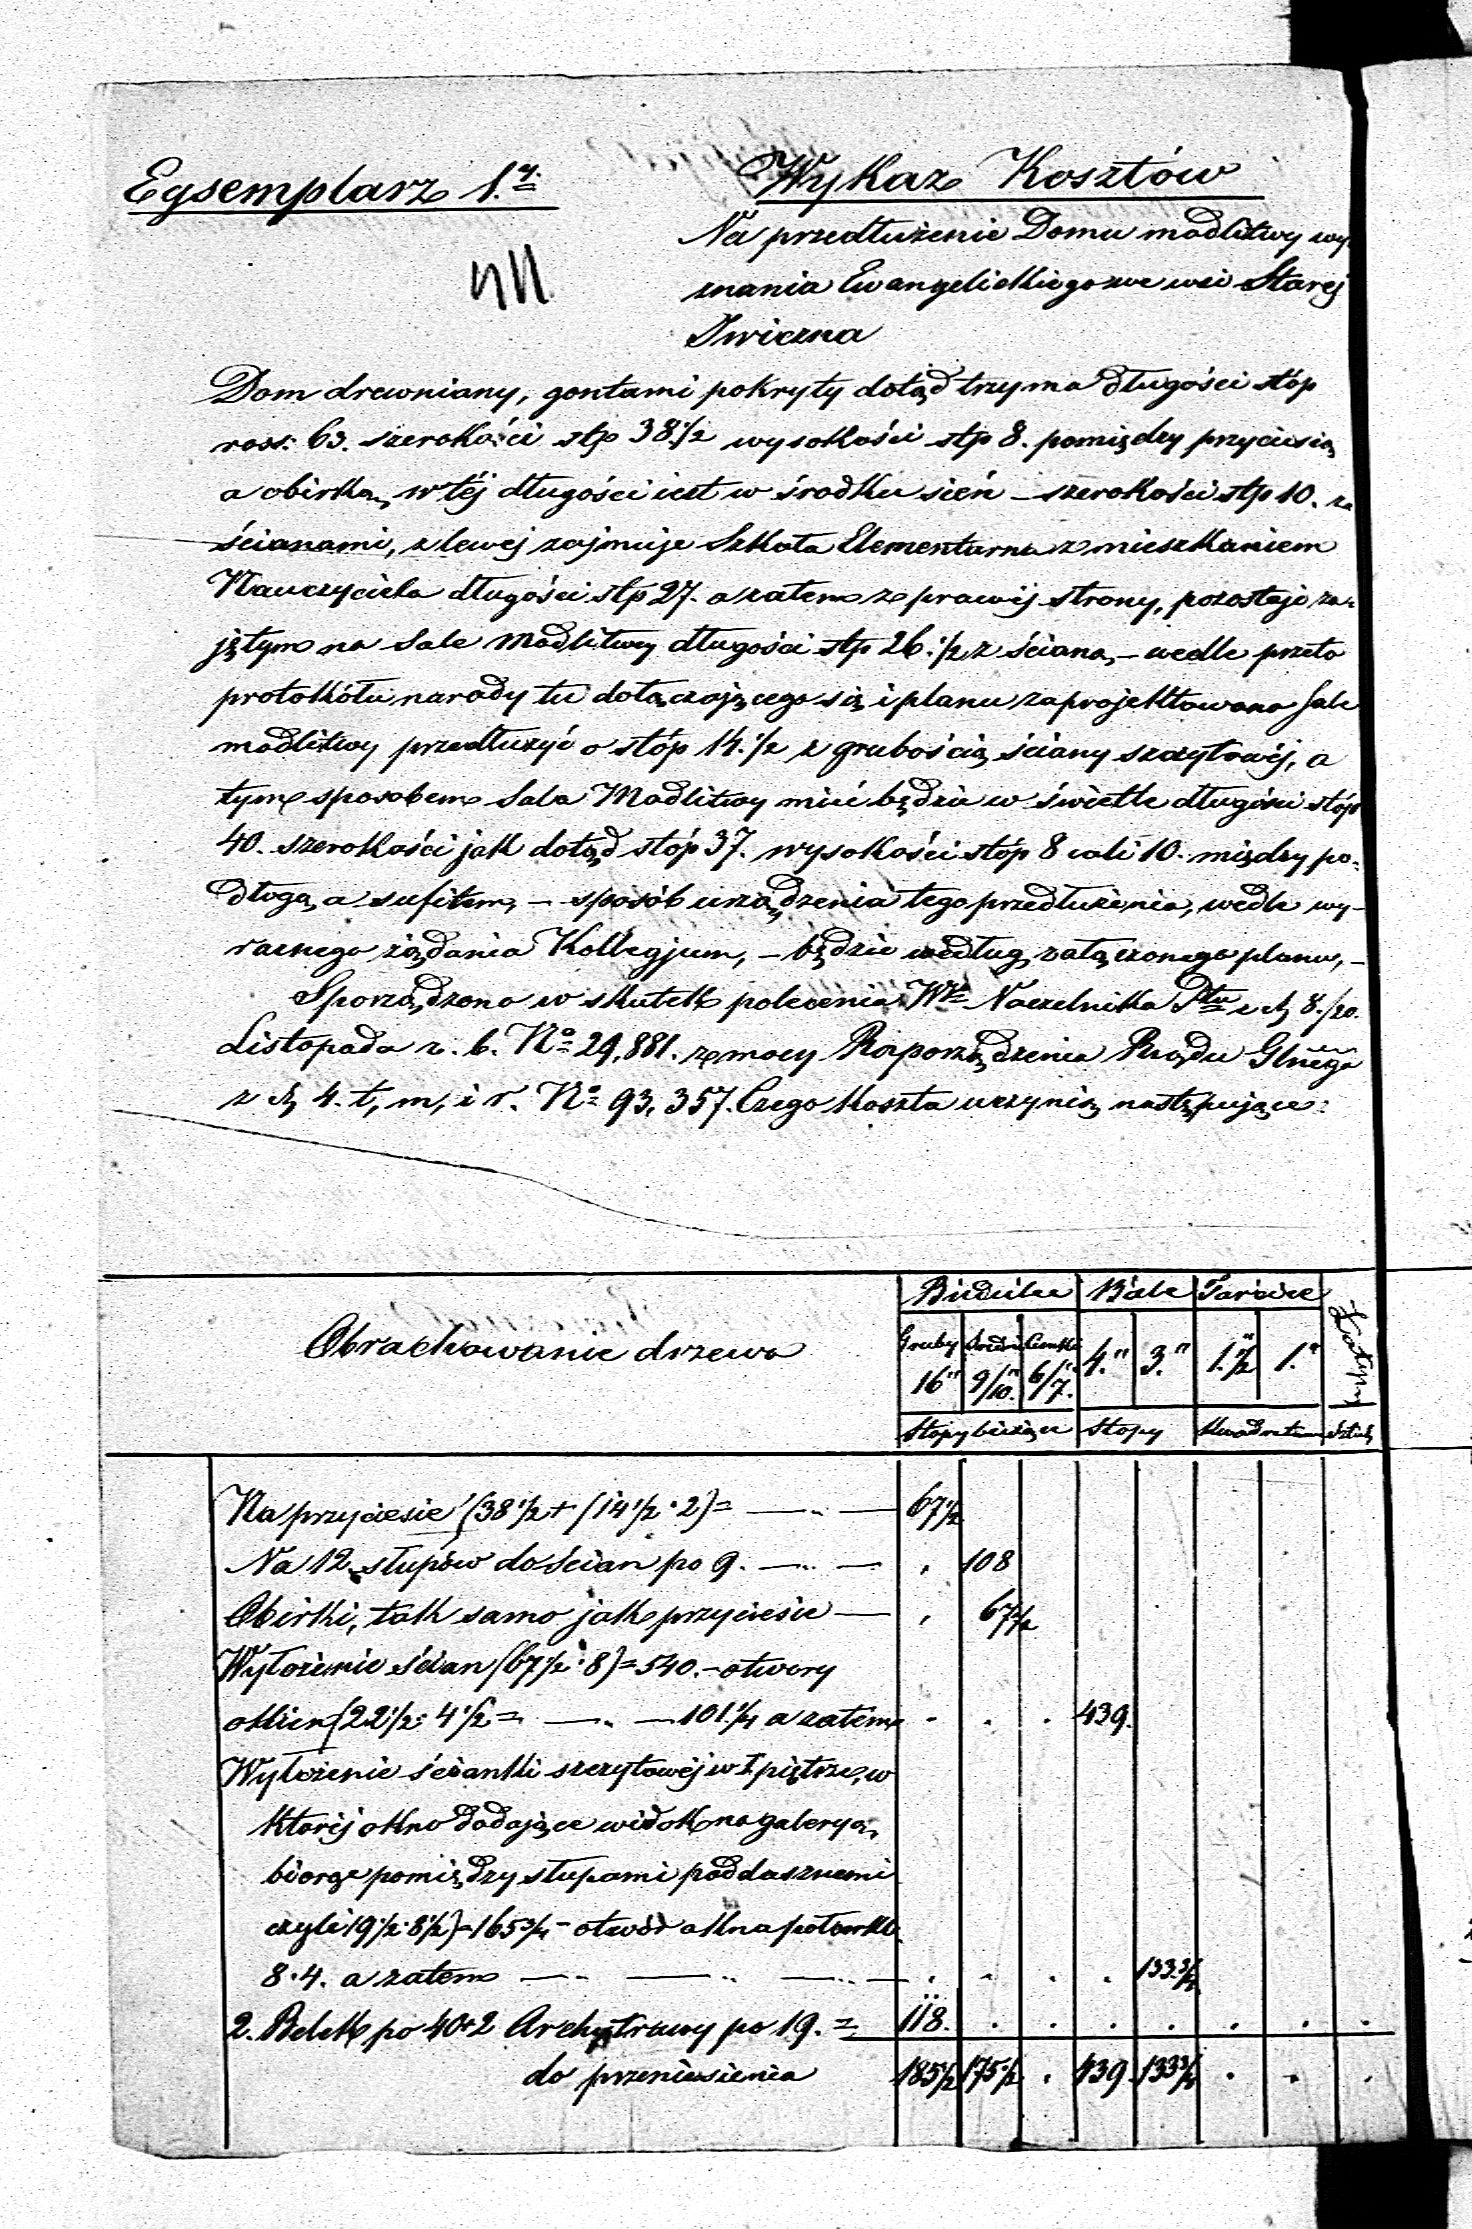 Egsemplarz 1.y
Wykaz Kosztów
Na przedłużenie Domu modlitwy wy-
znania Ewangelickiego we wsi Starej
Iwiczna
Dom drewniany, gontami pokryty dotąd trzyma długości stóp
ross: 63. szerokości stp 38 1/2 wysokości stp 8. pomiędzy przyciesią
a obirką, w téj długości iest w środku sień – szerokości stp 10. za
ścianami, z lewej zajmuje Szkoła Elementarna z mieszkaniem
Nauczyciela długości stp 27. a zatem z prawéj strony, pozostaje za-
jętym na Sale Modlitwy długości stp 26. 1/2 z ścianą, – wedle przeto
protokółu narady tu dołączającego się i planu zaprojektowano Sale
modlitwy przedłużyć o stóp 14. 1/2 z grubością ściany szczytowéj, a
tym sposobem Sala Modlitwy mieć będzie w świetle długości stóp
40. szerokości jak dotąd stóp 37. wysokości stóp 8 cali 10. między po-
dłogą a sufitem, – sposób urządzenia tego przedłużenia, wedle wy-
raznego żądania Kollegjum, – będzie według załączonego planu, –
Sporządzono w skutek polecenia Wo Naczelnika Ptu z d. 8./20.
Listopada r. b. No 29,881. z mocy Rozporządzenia Rządu Glnego
z d. 4. t, m, i r. No 93,357. Czego koszta uczynią następujące:
Obrachowanie drzewa
Bale
Tarcice
Gruby 16" Średni 9/10." Cienki 6/7." 4." 3." 1. 1/2" 1."
Stopy bieżące Stopy kwadratowe Sztuk
Na przyciesie (38 1/2 + (14 1/2 · 2) = — „ — 67 1/2
Na 12 słupów do ścian po 9. — „ — . 108
Obirki, tak samo jak przyciesie — . 67 1/2
Wyłożenie ścian (67 1/2 · 8) = 540. – otwory
okien (22 1/2 · 4 1/2 = — „ — 101 1/4 a zatem . . . 439.
Wyłożenie ścianki szczytowéj w I piętrze, w
któréj okno dodające widok na galeryą,
biorąc pomiędzy słupami poddasznemi
czyli 19 1/2 · 8 1/2) = 165 3/4 – otwór okna
8 · 4. a zatem — „ — „ — „ — . . . . 133 3/4
2. Belek po 40 + 2 Archytrawy po 19. = 118. . . . . . . .
do przeniesienia 185 1/2 175 1/2 . 439 133 3/4 . . .